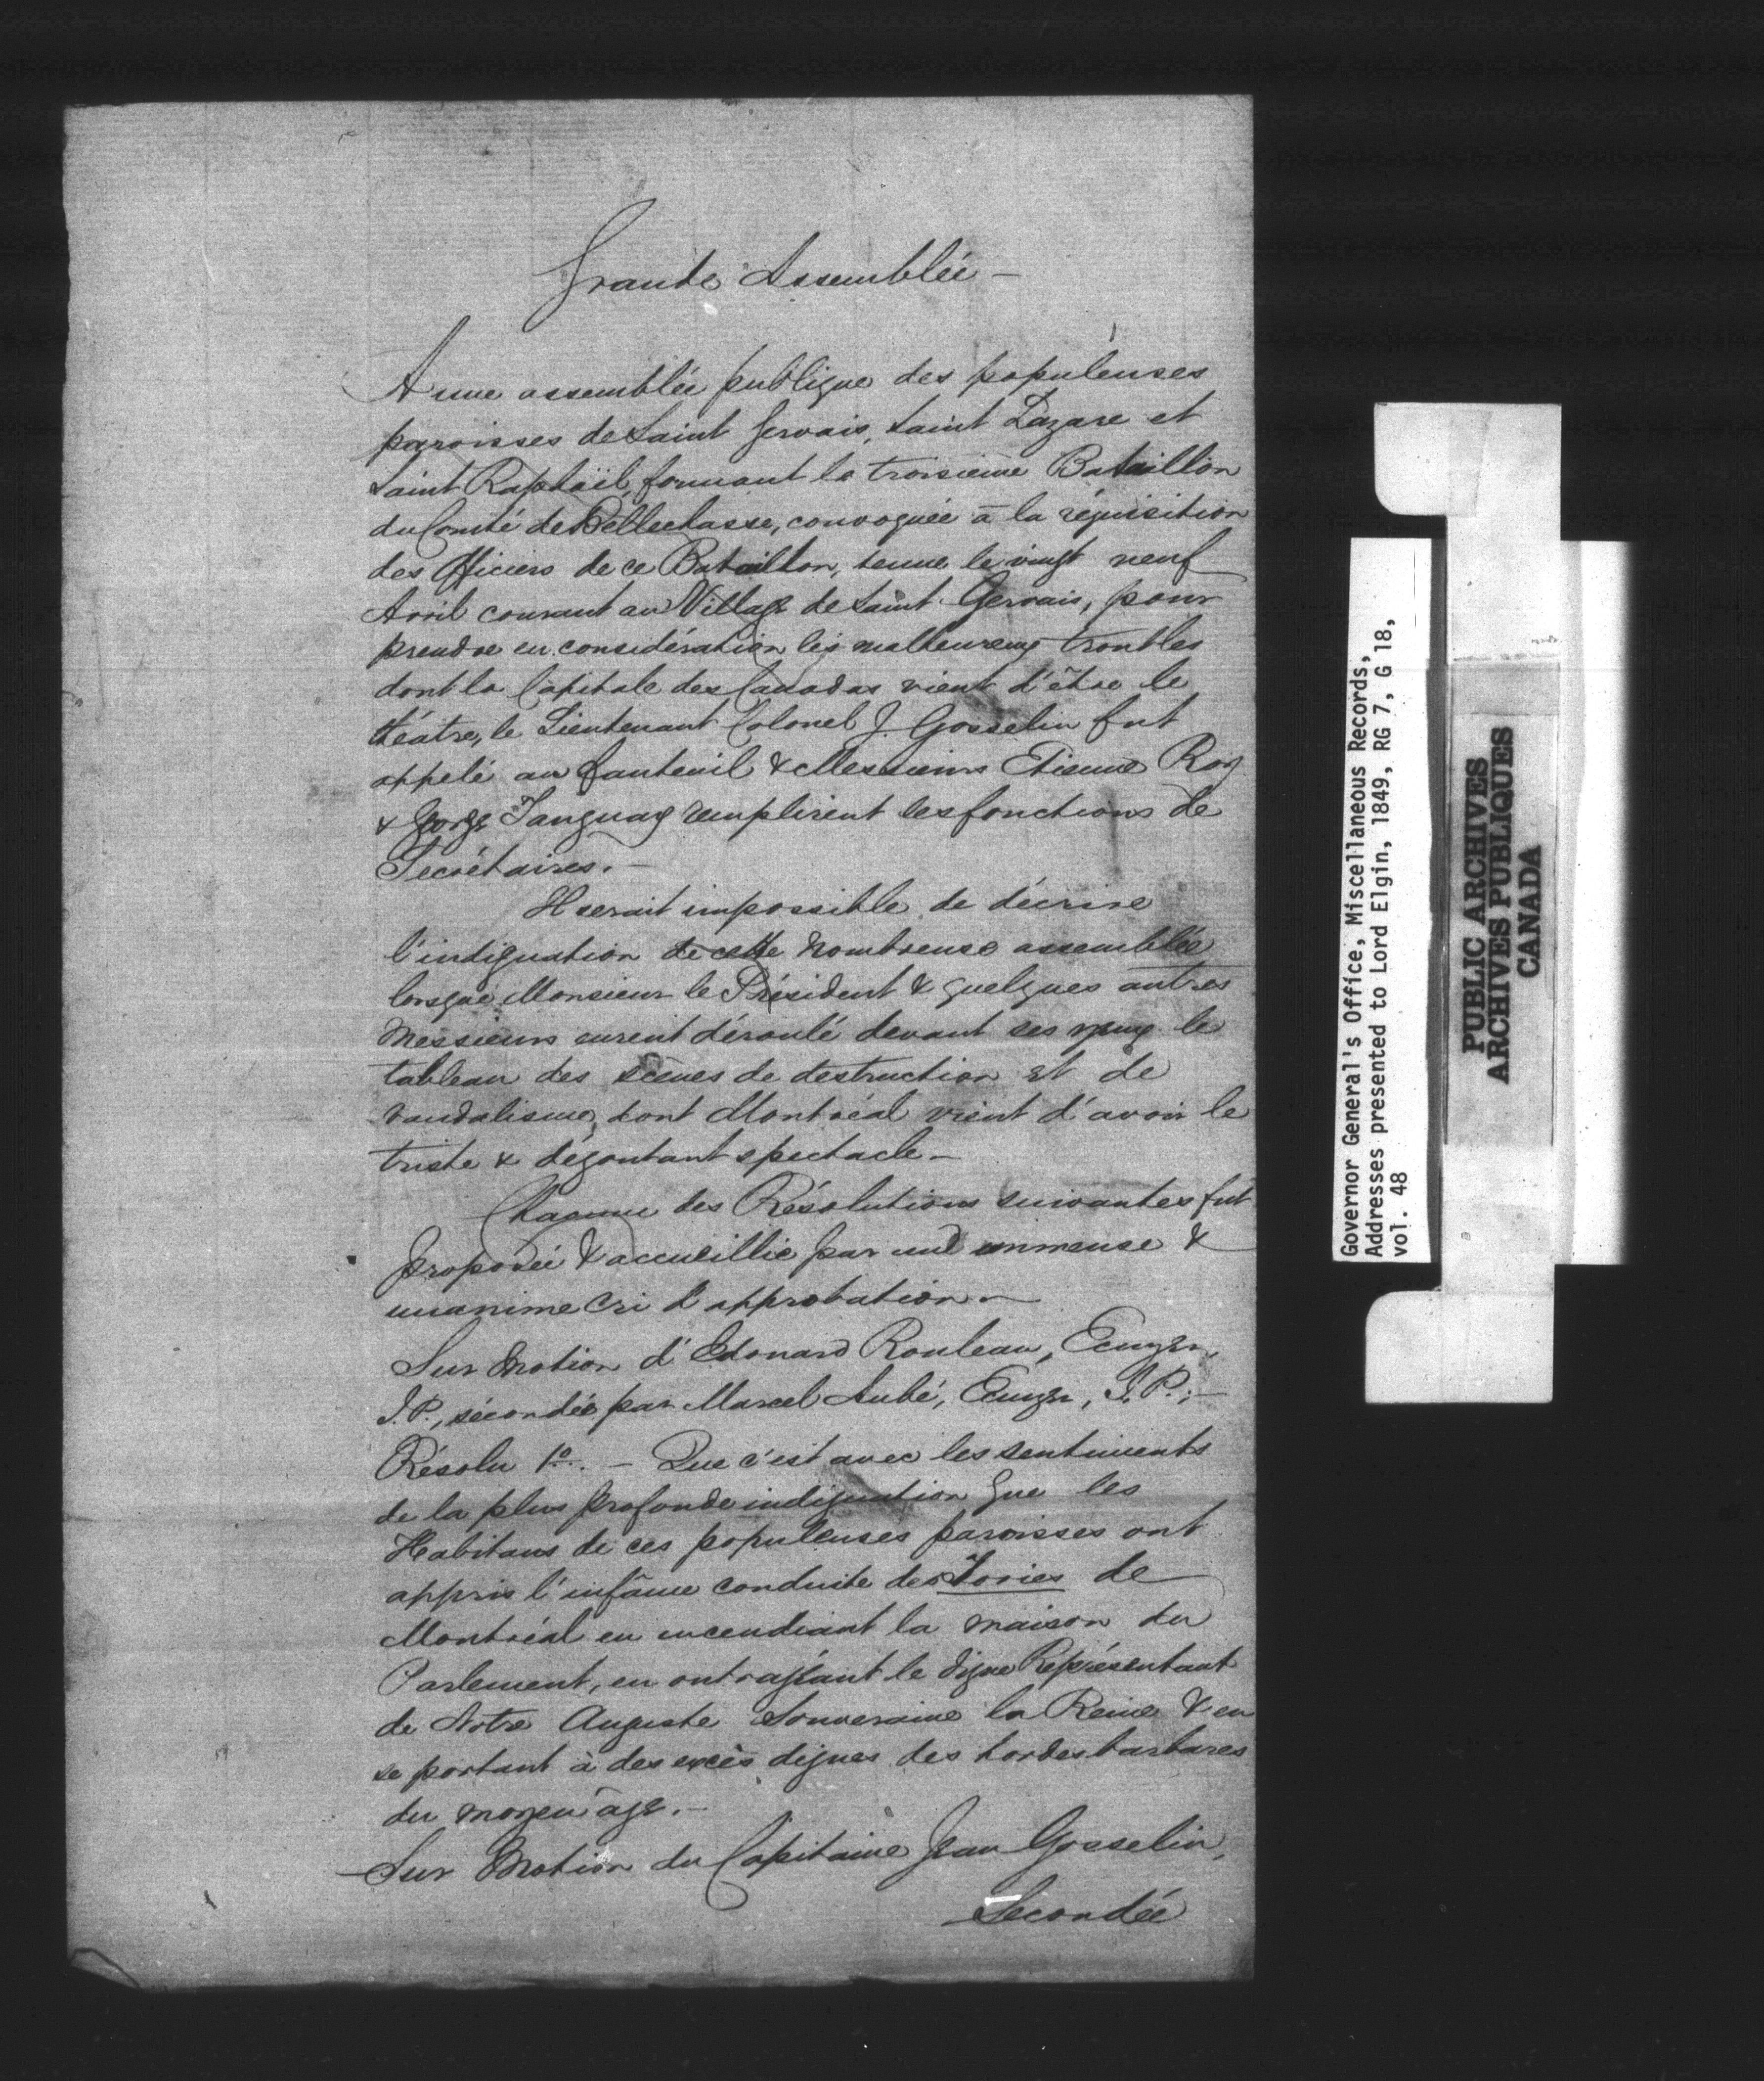 Grande Assemblée –
A une assemblée publique des populeuses
paroisses de Saint Gervais, Saint Lazare et
Saint Raphaël, formant le troisième Bataillon
du Comté de Bellechasse, convoquée à la réquisition
des Officiers de ce Bataillon, tenue le vingt neuf
Avril courant au Village de Saint Gervais, pour
prendre en considération les malheureux troubles
dont la Capitale des Canadas vient d'être le
théatre, le Lieutenant Colonel J. Gosselin fut
appelé au fauteuil & Messieurs Etienne Roy
& George Tanguay remplirent les fonctions de
Secrétaires. –
Il serait impossible de décrire
l'indignation de cette nombreuse assemblée
lorsque Monsieur le Président & quelques autres
Messieurs eurent déroulé devant ses yeux le
tableau des scènes de destruction et de
vandalisme, dont Montréal vient d'avoir le
triste & dégoutant spectacle –
Chacune des Résolutions suivantes fut
proposée & accueillie par une immense &
unanime cri d'approbation –
Sur Motion d'Edouard Rouleau, Ecuyer,
J.P., sécondée par Marcel Aubé, Ecuyer, J.P.; –
Résolu 1o. – Que c'est avec les sentiments
de la plus profonde indignation que les
Habitans de ces populeuses paroisses ont
appris l'infâme conduite des Tories de
Montréal en incendiant la maison du
Parlement, en outrageant le digne Représentant
de Notre Auguste Souveraine la Reine & en
se portant à des excès dignes des hordes barbares
du moyen âge. –
Sur Motion du Capitaine Jean Gosselin,
Secondée
Governor General's Office, Miscellaneous Records,
Addresses presented to Lord Elgin, 1849, RG 7, G 18,
vol. 48
PUBLIC ARCHIVES
ARCHIVES PUBLIQUES
CANADA